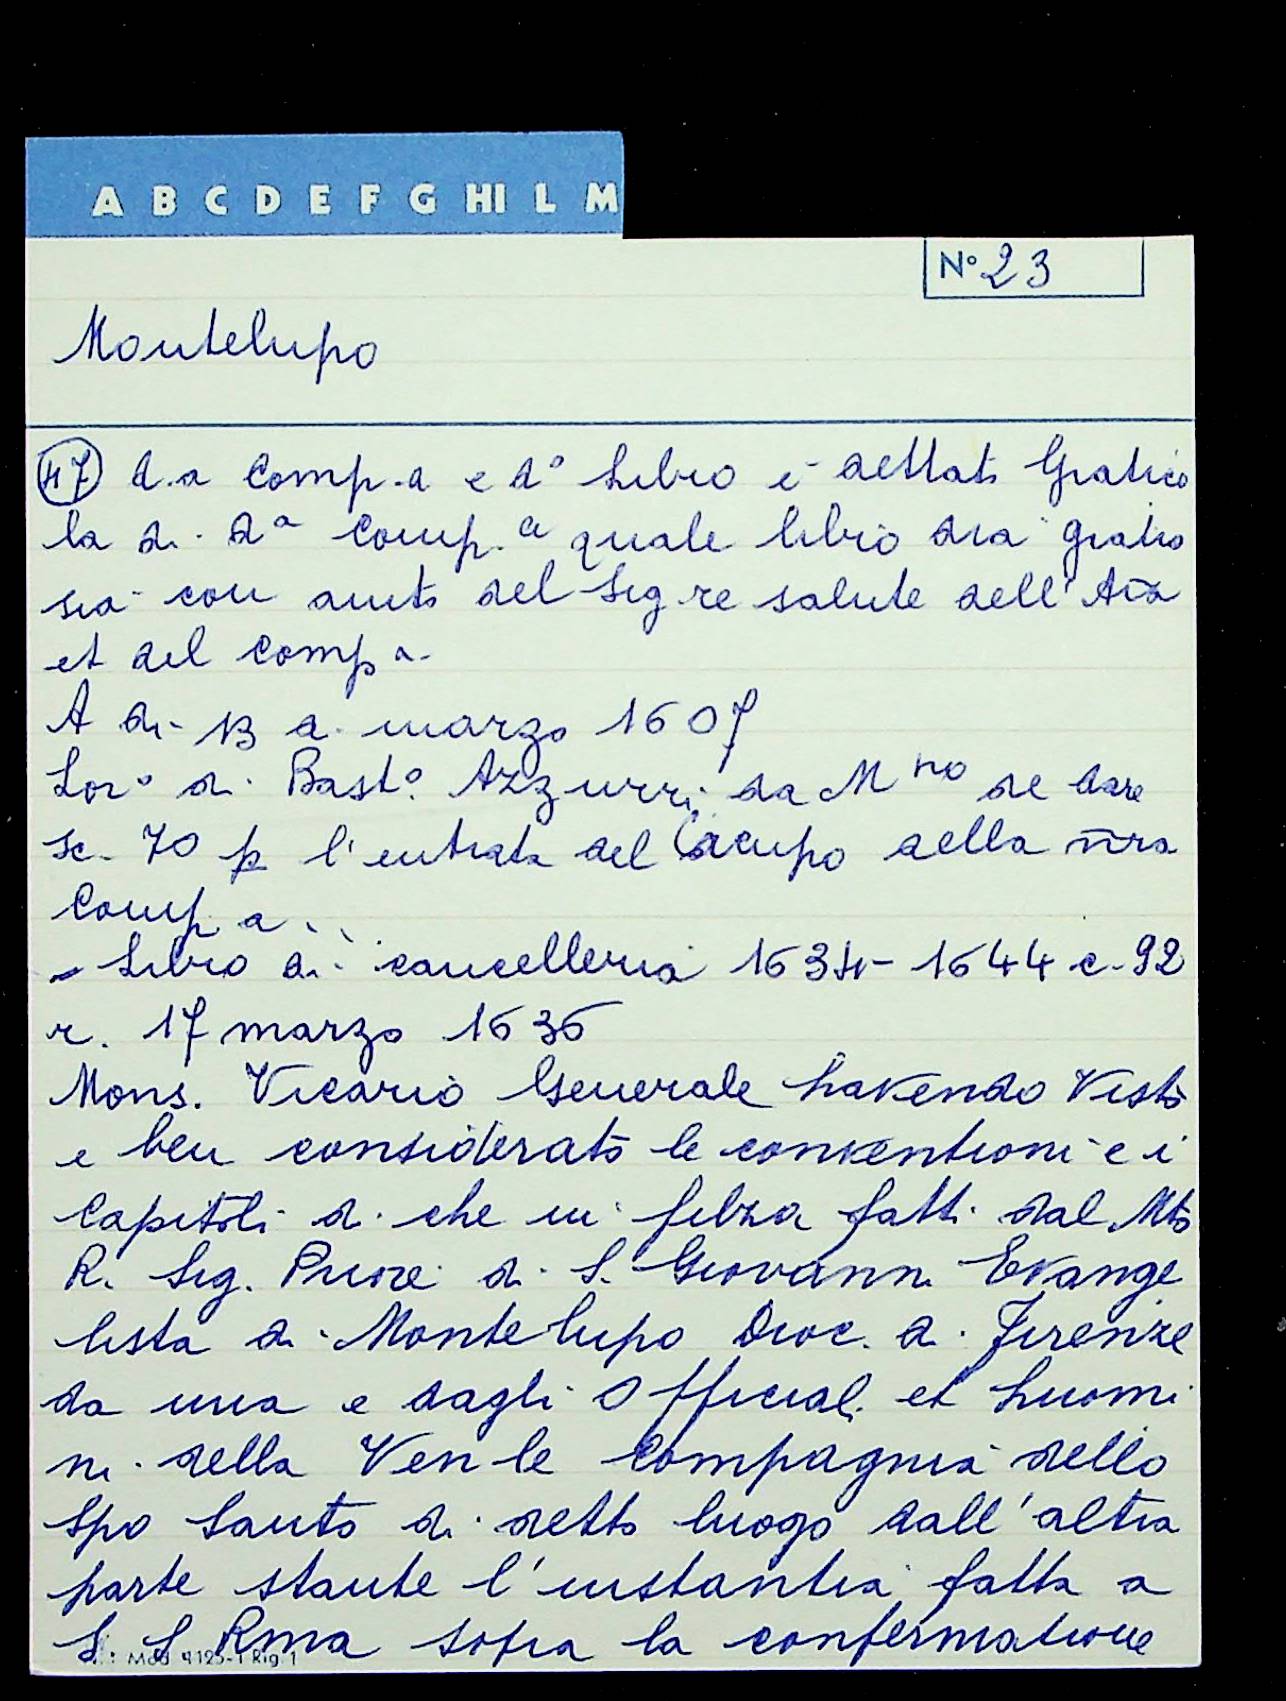 A B C D E F G HI L M
N° 23
Montelupo
47 d.a Comp.a e d° Libro è dettato Graticò
la di d.a Comp.a quale libro dia gratio
sia con aiuto del Sig.re salute dell'Aīa
et del Comp a.
A di 13 di marzo 1607
Lor° di Bast° Azzurri da M no de dare
sc. 70 p l'entrata del Campo della n̄ra
Comp a..
- Libro di cancelleria 1634-1644 c. 92
r. 17 marzo 1636
Mons. Vicario Generale havendo Visto
e ben considerato le conventioni e i
Capitoli di che in filza fatti dal Mto
R. Sig. Priore di S. Giovanni Evange
lista di Montelupo Dioc. di Firenze
da una e dagli Official. et huomi
ni della Ven le Compagnia dello
Spo Santo di detto luogo dall'altra
parte stante l'instantia fatta a
S S Rma sopra la confermatione
Mod 4125-1 Rig. 1